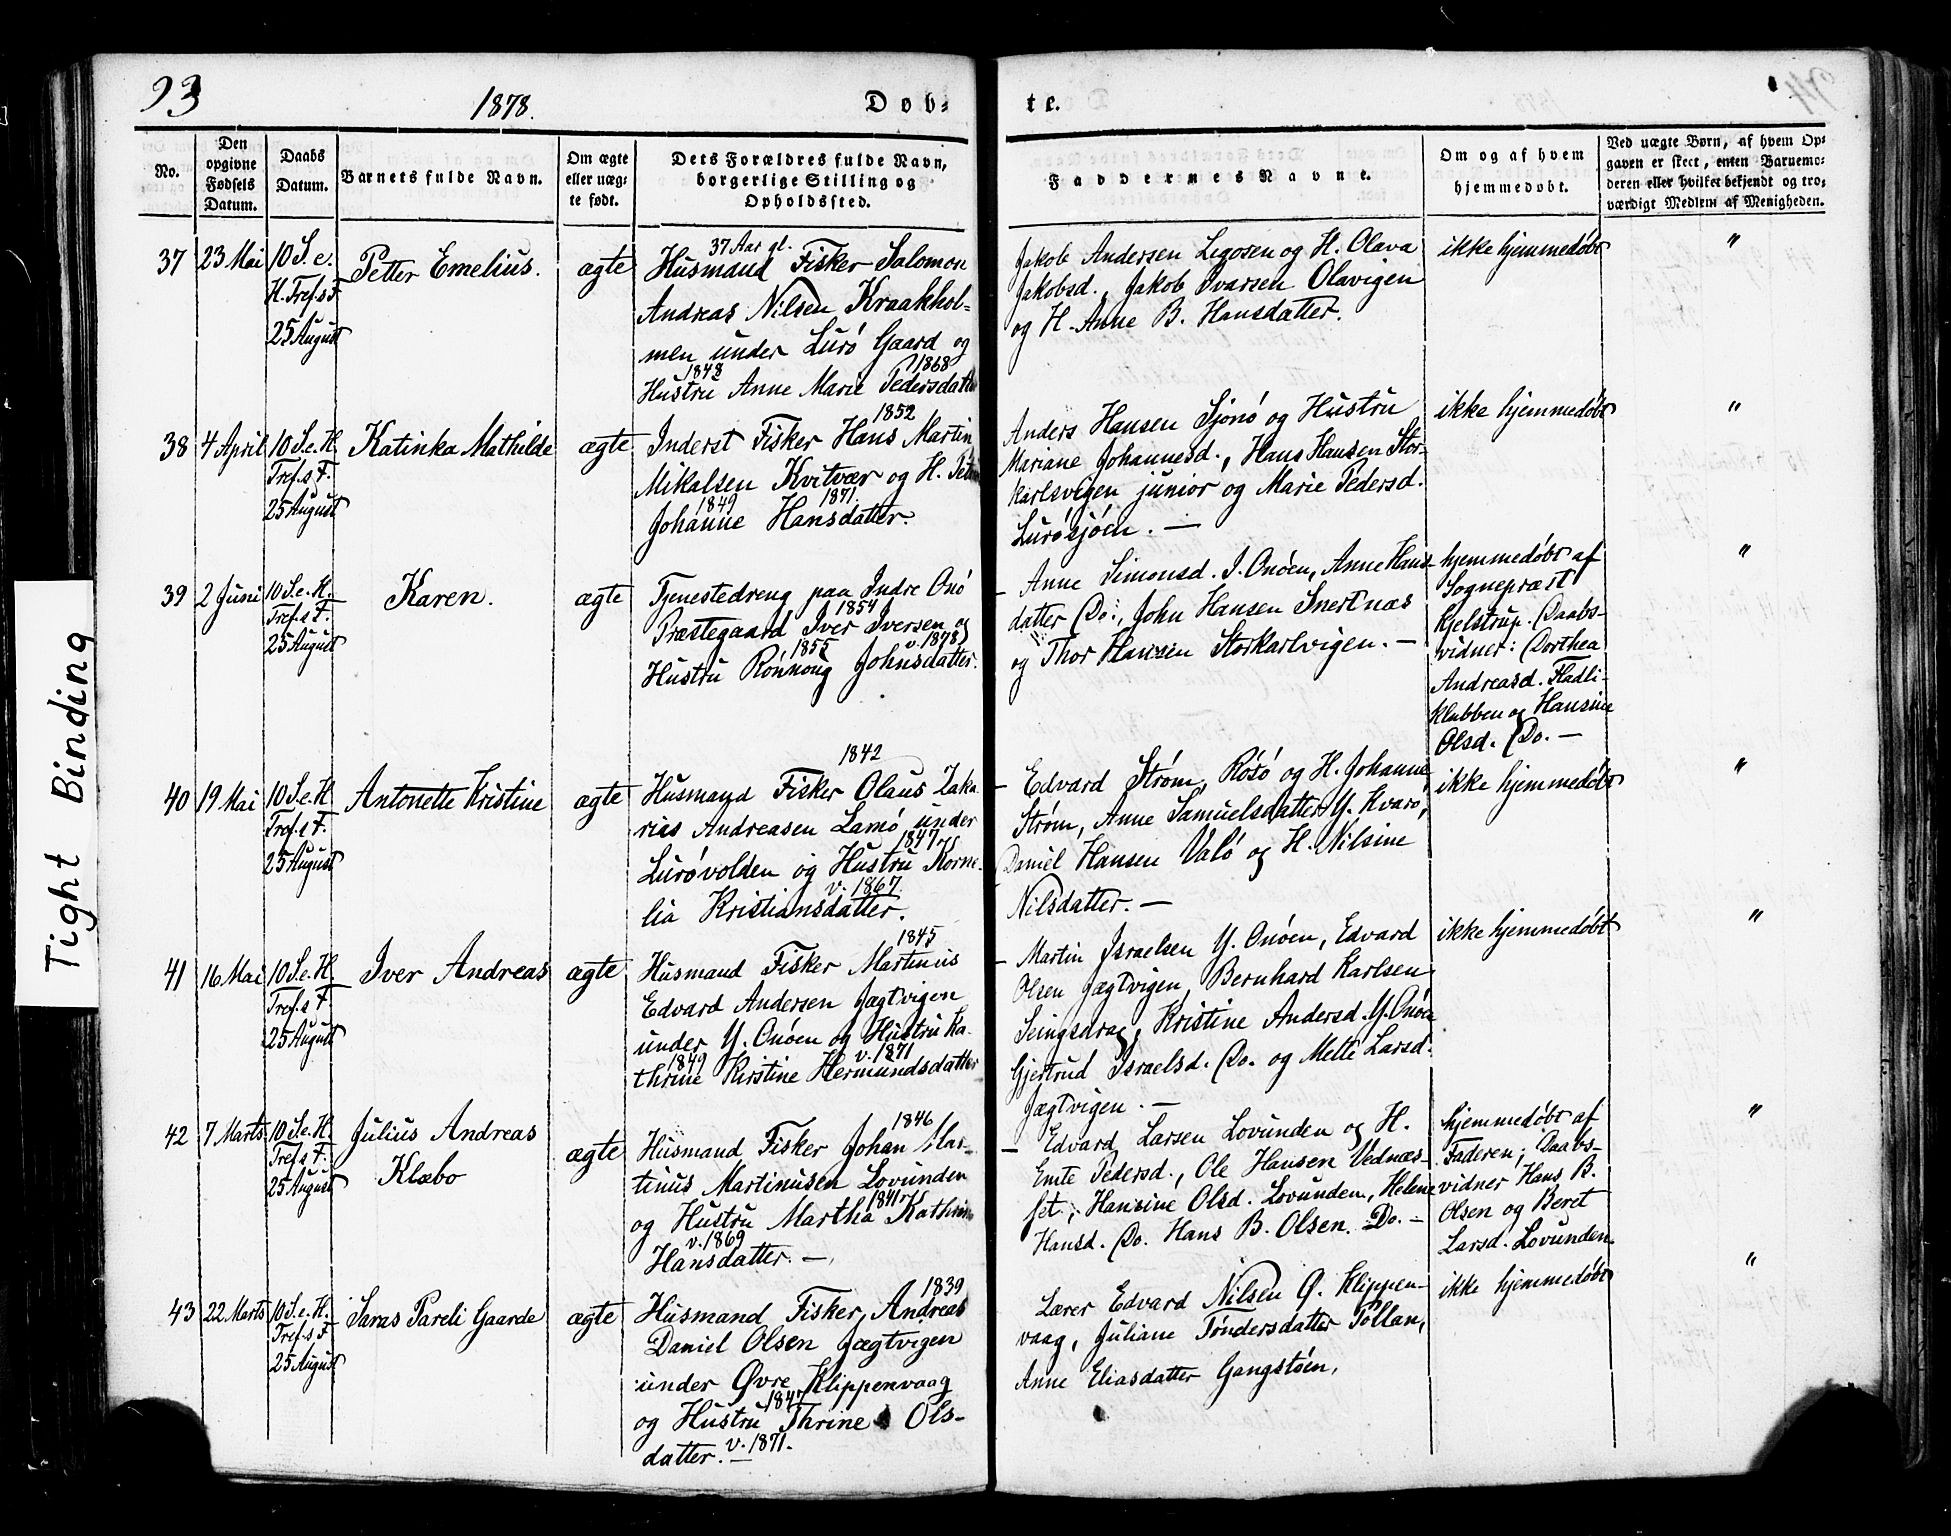 93
1878.
Døb-
te.
No.
Den
opgivne
Fødsels
Datum.
Daabs
Datum.
Barnets fulde Navn.
Om ægte
eller uæg-
te født.
Dets Forældres fulde Navn,
borgerlige Stilling og
Opholdssted.
Faddernes Navne.
Om og af hvem
hjemmedøbt.
Ved uægte Børn, af hvem Op-
gaven er skeet, enten Barnemo-
deren eller hvilket bekjendt og tro-
værdigt Medlem af Menigheden.
37
23 Mai
10 S. e.
H. Tref. s F
25 August
Petter Emelius.
ægte
37 Aar gl.
Husmand Fisker Salomon
Andreas Nilsen Kraakhol-
men under Lurö Gaard og
1848 1868
Hustru Anne Marie Pedersdatter
Jakob Andersen Legosen og H. Olava
Jakobsd., Jakob Ivarsen Olavigen
og H. Anne B. Hansdatter.
ikke hjemmedøbt
"
38
4 April
10 S. e. H.
Tref. s F.
25 August
Katinka Mathilde
ægte
1852
Inderst Fisker Hans Martin
Mikalsen Kvitvær og H.
1849 1871
Johanne Hansdatter.
Anders Hansen Sjonö og Hustru
Mariane Johannesd., Hans Hansen Stor-
karlsvigen junior og Marie Pedersd.
Lurösjöen. —
ikke hjemmedøbt
"
39
2 Juni
10 S. e. H.
Tref. s F.
25 August
Karen.
ægte
Tjenestedreng paa Indre Onö
1854
Præstegaard Iver Iversen og
1855 v. 1878
Hustru Rönnong Johnsdatter.
— Anne Simonsd. I. Onöen, Anne Hans-
datter Do., John Hansen Snertnæs
og Thor Hansen Storkarlvigen. —
hjemmedøbt af
Sognepræst
Kjelstrup. Daabs-
vidner: Dorthea
Andreasd. Fladli-
klubben og Hansine
Olsd. Do. —
"
40
19 Mai
10 S. e. H
Tref. s F.
25 August
Antonette Kristine
ægte
1842
Husmand Fisker Olaus Zaka
rias Andreasen Lamö under
1847
Lurövolden og Hustru Korne-
v. 1867.
lia Kristiansdatter.
— Edvard Ström, Rösö og H. Johanne
Ström, Anne Samuelsdatter Y. Kvarö,
Daniel Hansen Valö og H. Nilsine
Nilsdatter. —
ikke hjemmedøbt
"
41
16 Mai
10 S. e. H
Tref. s F.
25 August
Iver Andreas
ægte
1845
Husmand Fisker Martinus
Edvard Andersen Jægtvigen
under Y. Onöen og Hustru Ka-
1849 v. 1871
thrine Kirstine Hermundsdatter
— Martin Israelsen Y. Onöen, Edvard
Olsen Jægtvigen, Bernhard Karlsen
Selngsdrag, Kristine Andersd. Y. Onöen
Gjertrud Israelsd. Do. og Mette Larsd.
Jægtvigen. —
ikke hjemmedøbt
"
42
7 Marts
10 S. e. H.
Tref. s F.
25 August
Julius Andreas
Klæbo
ægte
1846
Husmand Fisker Johan Mar-
tinus Martinusen Lovunden
1841
og Hustru Martha Kathrine
v. 1869
Hansdatter. —
— Edvard Larsen Lovunden og H.
Emte Pedersd., Ole Hansen Vednæs-
set, Hansine Olsd. Lovunden, Helene
Hansd. Do. Hans B. Olsen. Do. —
hjemmedøbt af
Faderen; Daabs-
vidner Hans B.
Olsen og Beret
Larsd. Lovunden
"
43
22 Marts
10 S. e. H.
Tref. s F
25 August
Saras Pareli Gaarde
ægte
1839
Husmand Fisker Andreas
Daniel Olsen Jægtvigen
under Øvre Klippenvaag
1847
og Hustru Thrine Ols-
datter. v. 1871. —
Lærer Edvard Nilsen Ø. Klippen-
vaag, Juliane Töndersdatter Töllan,
Anne Eliasdatter Gangstöen,
ikke hjemmedøbt
"
Tight Binding